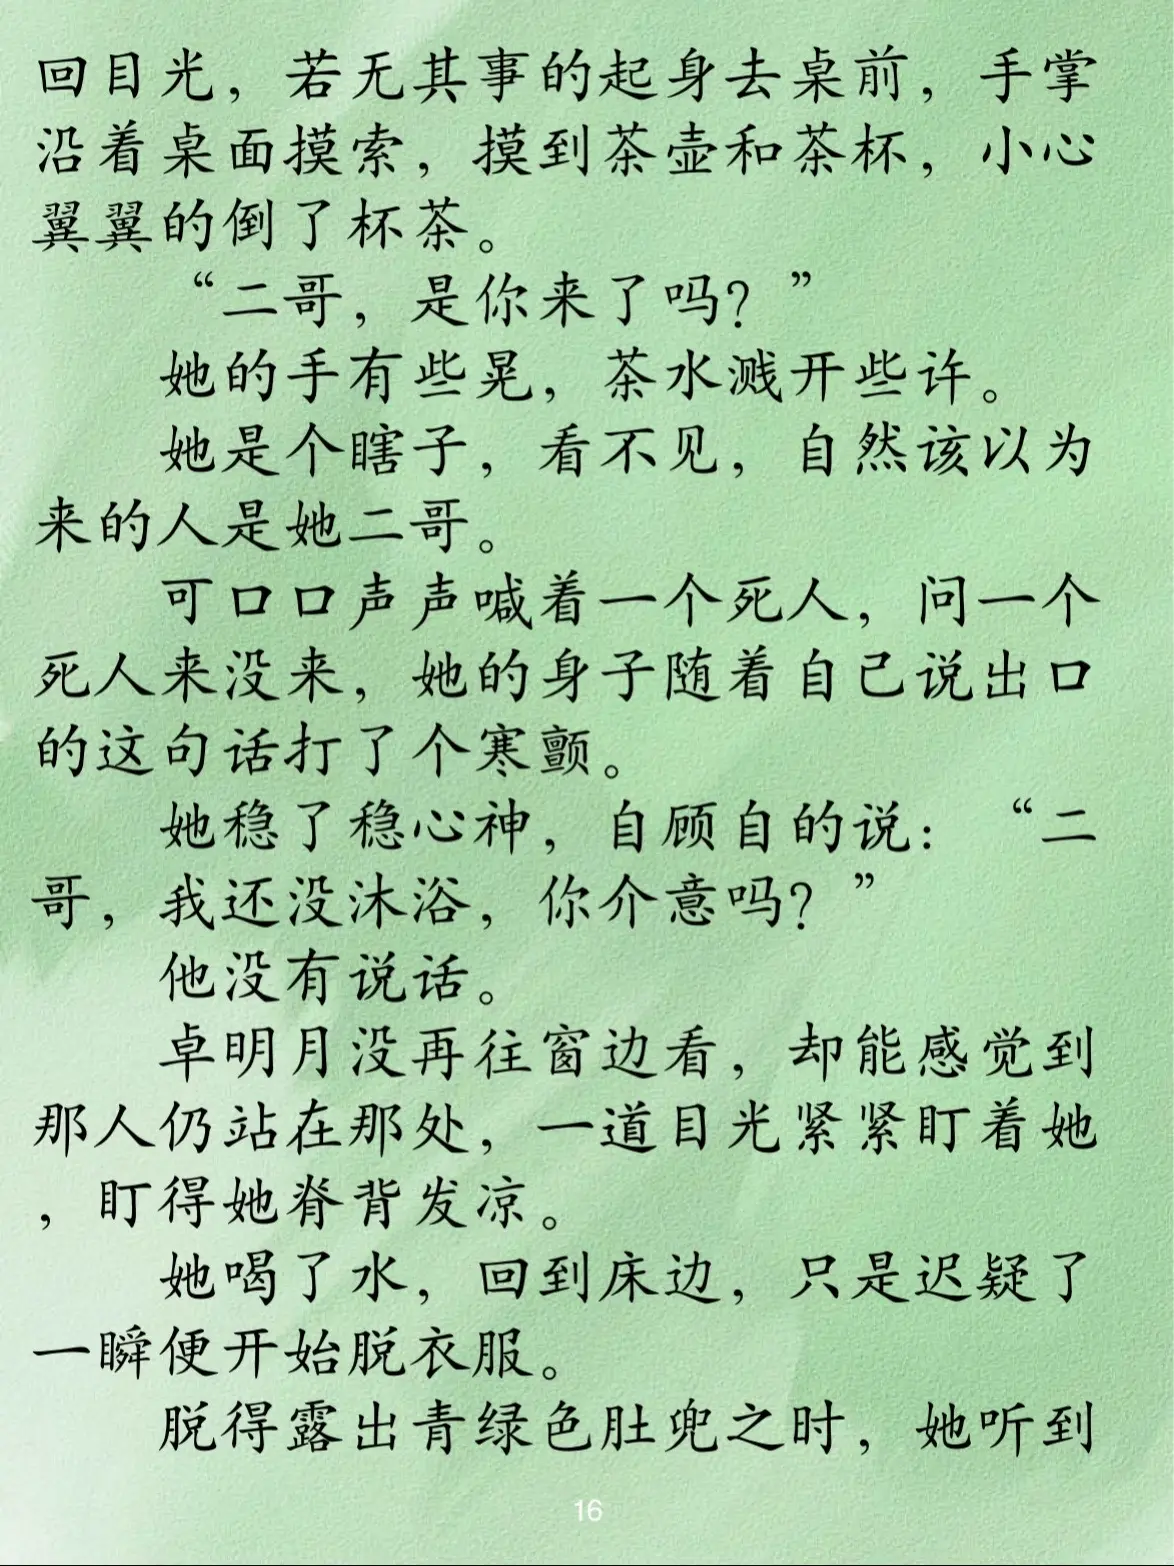 回目光，若无其事的起身去桌前，手掌
沿着桌面摸索，摸到茶壶和茶杯，小心
翼翼的倒了杯茶。
“二哥，是你来了吗？”
她的手有些晃，茶水溅开些许。
她是个瞎子，看不见，自然该以为
来的人是她二哥。
可口口声声喊着一个死人，问一个
死人来没来，她的身子随着自己说出口
的这句话打了个寒颤。
她稳了稳心神，自顾自的说：“二
哥，我还没沐浴，你介意吗？”
他没有说话。
卓明月没再往窗边看，却能感觉到
那人仍站在那处，一道目光紧紧盯着她
，盯得她脊背发凉。
她喝了水，回到床边，只是迟疑了
一瞬便开始脱衣服。
脱得露出青绿色肚兜之时，她听到
16